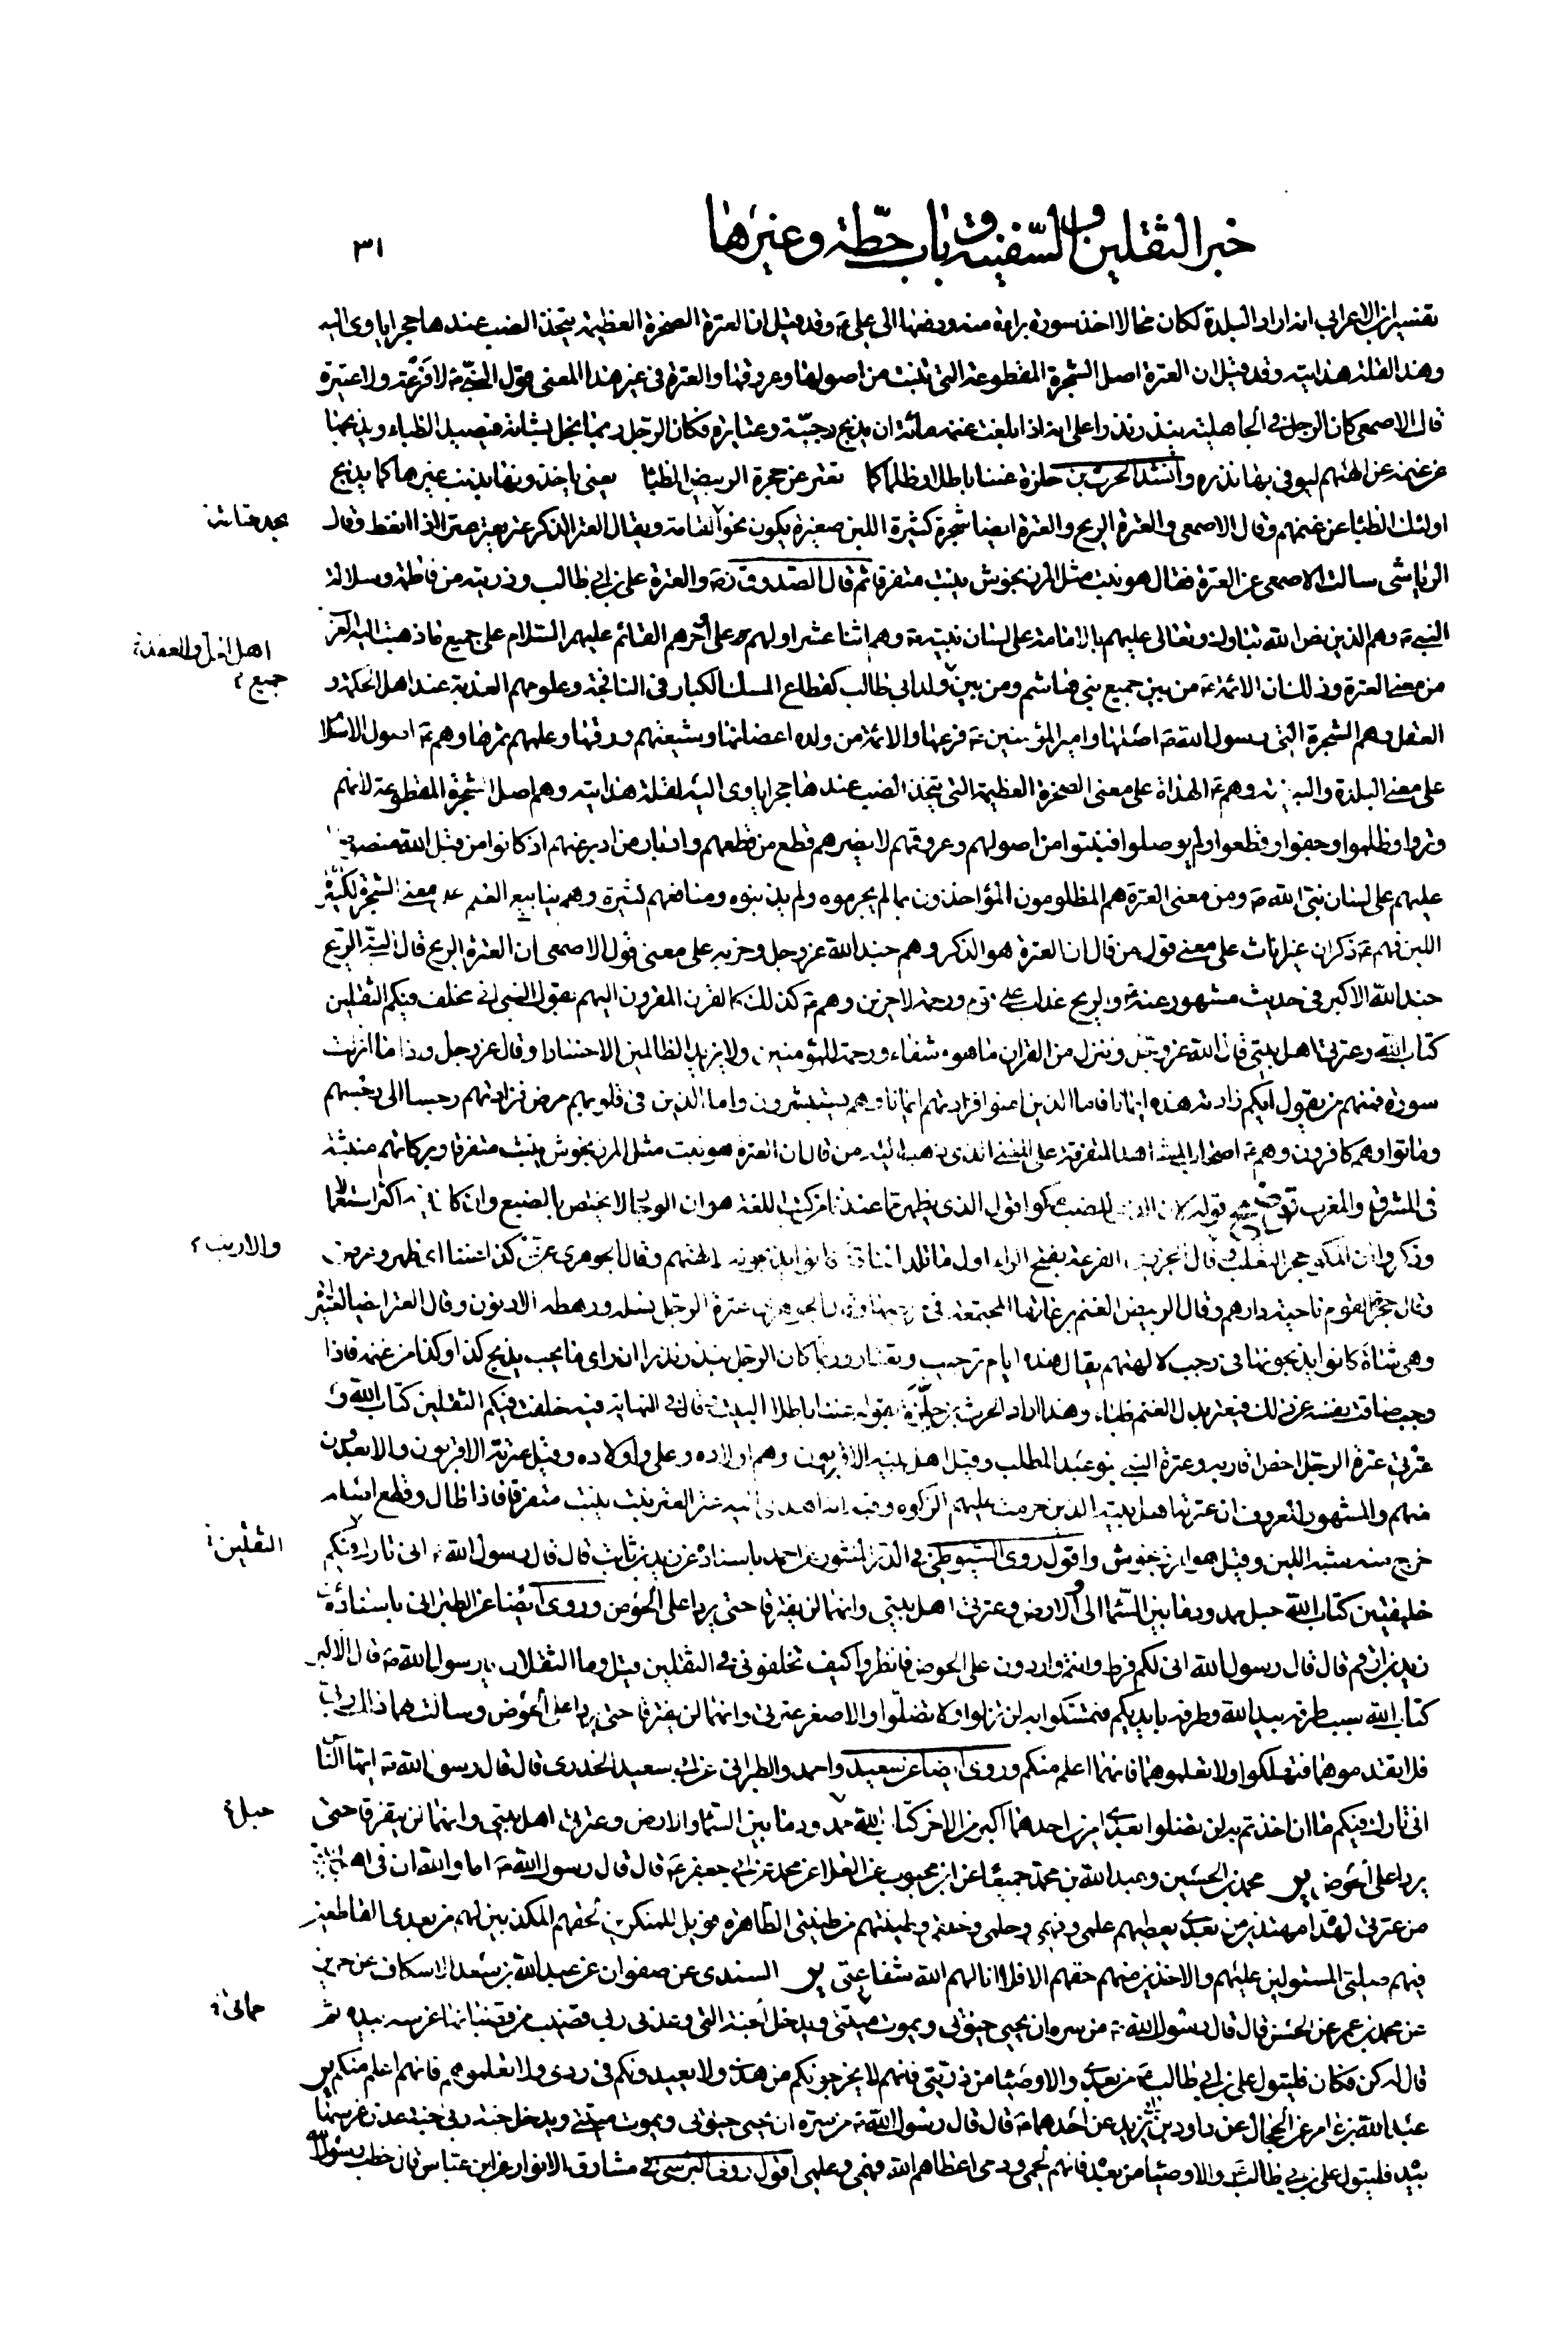 خبر الثقلين و السّفينة و باب حطّة و غيرها
٣١
تفسير ابن الاعرابي انه اراد البلدة لكان محالا اخذ سورة براءة منه ودفعها الى علي ع وقد قيل ان العترة الصخرة العظيمة يتخذ الضب عندها جحرا ياوى اليه
وهذا لقلة هدايته وقد قيل ان العترة اصل الشجرة المقطوعة التي تنبت من اصولها وعروقها والعترة في غير هذا المعنى قول النبي ص لا فرعة ولا عتيرة
قال الاصمعي كان الرجل في الجاهلية ينذر نذرا على انه اذا بلغت غنمه مائة ان يذبح رجبيّة وعتايره فكان الرجل ربما بخل بشاته فيصيد الظباء ويذبحها
عن غنمه عن الهتهم ليوفى بها نذره وانشد الحرث بن حلزة عننا باطلا وظلما كما تعتر عن حجرة الربيض الظبا يعنى ياخذونها بذنب غيرها كما يذبح
اولئك الظباء عن غنمهم وقال الاصمعي والعترة الريح والعترة ايضا شجرة كثيرة اللبن صغيرة يكون نحو القامة ويقال العتر الذكر عتر يعتر عترا اذا انعظ وقال
الرياشى سالت الاصمعي عن العترة فقال هو نبت مثل المرزنجوش ينبت متفرقا ثم قال الصدوق ره والعترة علي بن ابي طالب وذريته من فاطمة وسلالة
النبي ص وهم الذين نص الله تبارك وتعالى عليهم بالامامة على لسان نبيه ص وهم اثنا عشر اولهم علي وآخرهم القائم عليهم السلام على جميع ما ذهبت اليه العرب
من معنى العترة وذلك ان الائمة ع من بين جميع بني هاشم ومن بين ولد ابي طالب كقطاع المسك الكبار في النافجة وعلومهم العذبة عند اهل الحكمة و
العقل وهم الشجرة التي رسول الله ص اصلها وامير المؤمنين ع فرعها والائمة من ولده اغصانها وشيعتهم ورقها وعلمهم ثمرها وهم ع اصول الاسلام
على معنى البلدة والبيضة وهم ع الهداة على معنى الصخرة العظيمة التي يتخذ الضب عندها جحرا ياوى اليه لقلة هدايته وهم اصل الشجرة المقطوعة لانهم
وتروا وظلموا وجفوا وقطعوا ولم يوصلوا فنبتوا من اصولهم وعروقهم لا يضرهم قطع من قطعهم وادبار من ادبر عنهم اذ كانوا من قبل الله منصوصا
عليهم على لسان نبي الله ص ومن معنى العترة هم المظلومون المؤاخذون بما لم يجرموه ولم يذنبوه ومنافعهم كثيرة وهم ينابيع العلم على معنى الشجرة الكثيرة
اللبن فهم ع ذكران غير اناث على معنى قول من قال ان العترة هو الذكر وهم جند الله عز وجل وحزبه على معنى قول الاصمعي ان العترة الريح قال النبي الريح
جند الله الاكبر في حديث مشهور عنه ص والريح عذاب على قوم ورحمة لاخرين وهم ع كذلك كالقران المقرون اليهم بقول النبي اني مخلف فيكم الثقلين
كتاب الله وعترتي اهل بيتي قال الله عز وجل وننزل من القران ما هو شفاء ورحمة للمؤمنين ولا يزيد الظالمين الا خسارا وقال عز وجل واذا ما انزلت
سورة فمنهم من يقول ايكم زادته هذه ايمانا فاما الذين امنوا فزادتهم ايمانا وهم يستبشرون واما الذين في قلوبهم مرض فزادتهم رجسا الى رجسهم
وماتوا وهم كافرون وهم ع اصحاب المشاهد المتفرقة على المعنى الذي ذهب اليه من قال ان العترة هو نبت مثل المرزنجوش ينبت متفرقا وبركاتهم منبثة
في المشرق والمغرب توضيح قوله لان الذي للضب مكو اقول الذي يظهر مما عندنا من كتب اللغة هو ان الوجار لا يختص بالضبع وان كان فيه اكثر استعمالا
وذكروا ان المكو جحر الثعلب قال الجزري الفرعة بفتح الراء اول ما تلد الناقة كانوا يذبحونه لالهتهم وقال الجوهرى عن كذا عننا اى ظهر وعرض
وقال حجرة القوم ناحية دارهم وقال الربيض الغنم برعاتها المجتمعة في وقال الجوهرى عترة الرجل نسله ورهطه الادنون وقال العتر ايضا العتيرة
وهي شاة كانوا يذبحونها في رجب لالهتهم يقال هذه ايام ترجيب وتعتار وربما كان الرجل ينذر نذرا ان راى ما يحب يذبح كذا وكذا من غنمه فاذا
وجب ضاقت نفسه عن ذلك فيعتر بدل الغنم ظباء وهذا اراد الحرث بن حلّزة بقوله عننا باطلا البيت قال في النهاية فيه خلفت فيكم الثقلين كتاب الله و
عترتي عترة الرجل اخص اقاربه وعترة النبي بنو عبد المطلب وقيل اهل بيته الاقربون وهم اولاده وعلي واولاده وقيل عترته الاقربون والابعدون
منهم والمشهور المعروف ان عترته اهل بيته الذين حرمت عليهم الزكوة وفيه انه اهدى اليه عتر العتر نبت ينبت متفرقا فاذا طال وقطع اصله
خرج منه شبه اللبن وقيل هو المرزنجوش واقول روى السيوطي في الدر المنثور عن احمد باسناده عن زيد بن ثابت قال قال رسول الله ص اني تارك فيكم
خليفتين كتاب الله حبل ممدود ما بين السماء الى الارض وعترتي اهل بيتي وانهما لن يفترقا حتى يردا على الحوض وروى ايضا عن الطبراني باسناده عن
زيد بن ارقم قال قال رسول الله اني لكم فرط وانتم واردون على الحوض فانظروا كيف تخلفوني في الثقلين قيل وما الثقلان يا رسول الله ص قال الاكبر
كتاب الله سبب طرفه بيد الله وطرفه بايديكم فتمسكوا به لن تزلوا ولا تضلّوا والاصغر عترتي وانهما لن يفترقا حتى يردا على الحوض وسالت لهما ذاك ربي
فلا تقدموهما فتهلكوا ولا تعلموهما فانهما اعلم منكم وروى ايضا عن سعيد واحمد والطبراني عن ابي سعيد الخدرى قال قال رسول الله ص ايها الناس
اني تارك فيكم ما ان اخذتم به لن تضلوا بعدي امرين احدهما اكبر من الاخر كتاب الله ممدود ما بين السماء والارض وعترتي اهل بيتي وانهما لن يفترقا حتى
يردا على الحوض ير محمد بن الحسين وعبد الله بن محمد جميعا عن ابن محبوب عن العلا عن محمد عن ابي جعفر ع قال قال رسول الله ص اما والله ان في اهل بيتي
من عترتي لهداة مهتدين من بعدي يعطيهم علمي وفهمي وحلمي وخلقي وطينتهم من طينتي الطاهرة فويل للمنكرين لحقهم المكذبين لهم من بعدي القاطعين
فيهم صلتي المستولين عليهم والاخذين منهم حقهم الا فلا انالهم الله شفاعتي ير السندى عن صفوان عن عبد الله بن سعد الاسكاف عن حريز
عن محمد بن عمر عن الحسن قال قال رسول الله ص من سره ان يحيى حيوتي ويموت ميتتي ويدخل الجنة التي وعدني ربي قضيب من قضبانها غرسه بيده ثم
قال له كن فكان فليتول علي بن ابي طالب ع من بعدي والاوصيا من ذريتي فانهم لا يخرجونكم من هدى ولا يعيدونكم في ردى ولا تعلموهم فانهم اعلم منكم ير
عبد الله بن عامر عن الحجال عن داود بن يزيد عن احدهما ع قال قال رسول الله ص من سره ان يحيى حيوتي ويموت ميتتي ويدخل جنة ربي جنة عدن غرسها
بيده فليتول علي بن ابي طالب والاوصيا من بعده فانهم لحمي ودمي اعطاهم الله فهمي وعلمي اقول روى البرسي في مشارق الانوار عن ابن عباس قال خطب رسول الله
اهل العقل
جميع
والارنب
الثقلين
حبل
مماتي